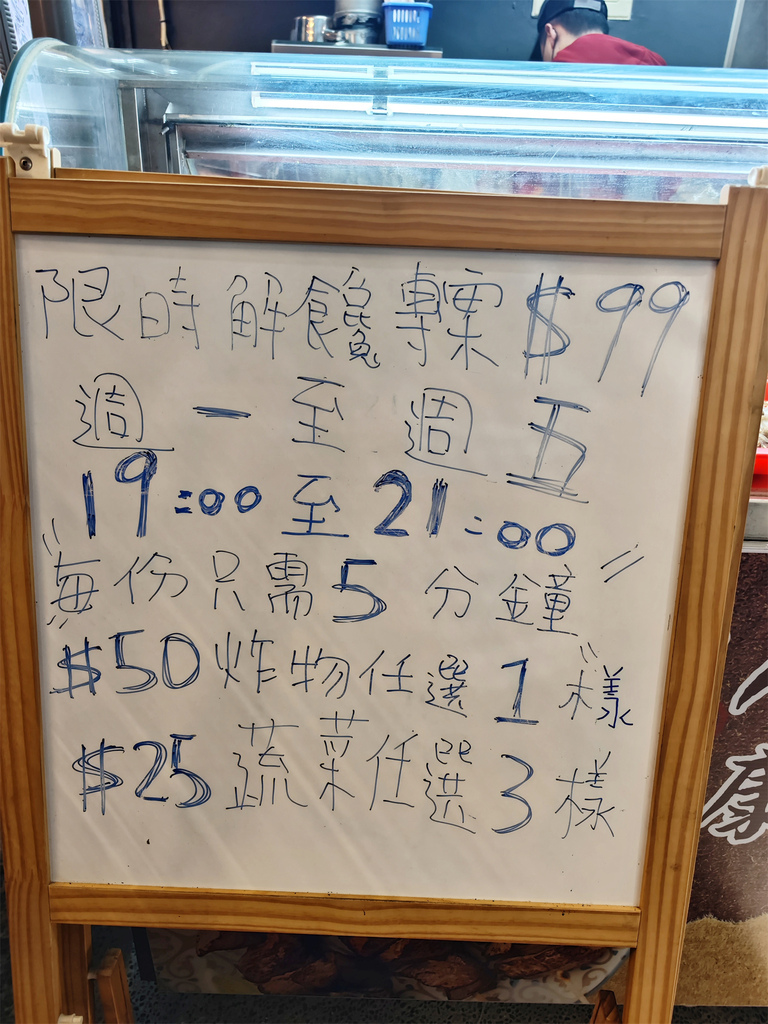 限時解饞專案$99
週一至週五
19:00至21:00
"每份只需5分鐘"
$50炸物任選1樣
$25蔬菜任選3樣
康